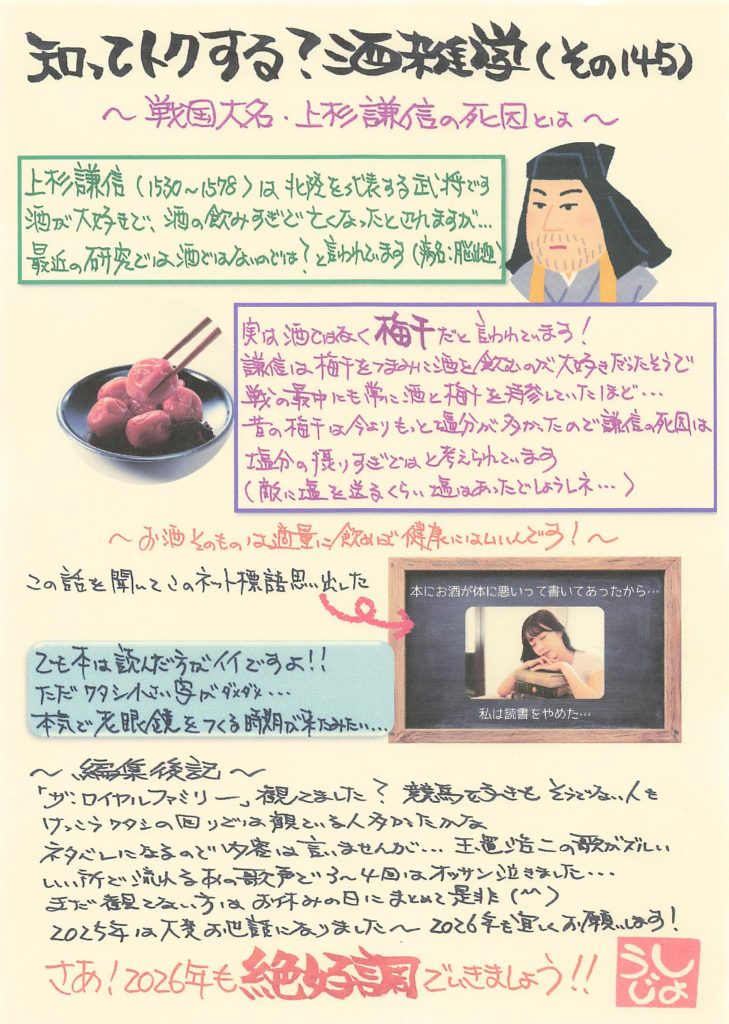 知ってトクする？酒雑学（その145）
～戦国大名・上杉謙信の死因とは～
上杉謙信（1530～1578）は北陸を代表する武将です
酒が大好きで、酒の飲みすぎで亡くなったとされますが…
最近の研究では酒ではないのでは？と言われています（病名：脳出血）
実は酒ではなく梅干だと言われています！
謙信は梅干をつまみに酒を飲むのが大好きだったそうで
戦の最中にも常に酒と梅干を持参していたほど…
昔の梅干は今よりもっと塩分が多かったので謙信の死因は
塩分の摂りすぎではと考えられています
（敵に塩を送るくらい塩はあったでしょうしネ…）
～お酒そのものは適量に飲めば健康にはいいんです！～
この話を聞いてこのネット標語思い出した
本にお酒が体に悪いって書いてあったから…
私は読書をやめた…
でも本は読んだ方がイイですよ!!
ただワタシ小さい字がダメダメ…
本気で老眼鏡をつくる時期が来たみたい…
～編集後記～
「ザ・ロイヤルファミリー」観てました？競馬好きもそうでない人も
けっこうワタシの回りでは観ている人多かったかな
ネタバレになるので内容は言いませんが…玉置浩二の歌がズルい
いい所で流れるあの歌声で3～4回はオッサン泣きました…
まだ観てない方はお休みの日にまとめて是非（^^）
2025年は大変お世話になりました～2026年も宜しくお願いします！
さあ！2026年も絶好調でいきましょう!!
うしじょ